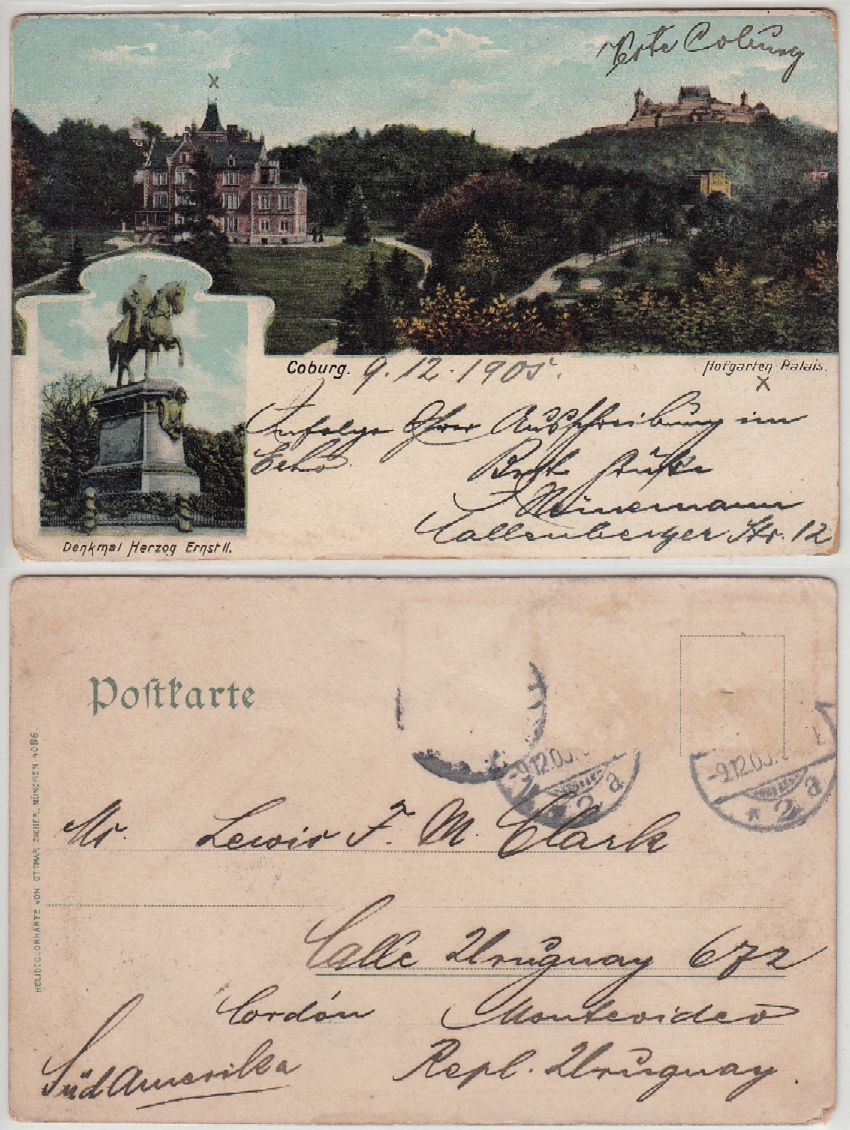 Veste Coburg
x
Coburg. 9.12.1905.
Hofgarten-Palais.
x
Infolge Ihrer Ausschreibung im
Echo. Besten Gruß
Heinemann
Callenberger Str. 12
Denkmal Herzog Ernst II.
Postkarte
HELIOCOLORKARTE VON OTTMAR ZIEHER, MÜNCHEN 4086
-9.12.05.
-9.12.05.
* 2e
* 2e
Mr. Lewis F. M. Clark
Calle Uruguay 672
Cordón Montevideo
SüdAmerika Repl. Uruguay